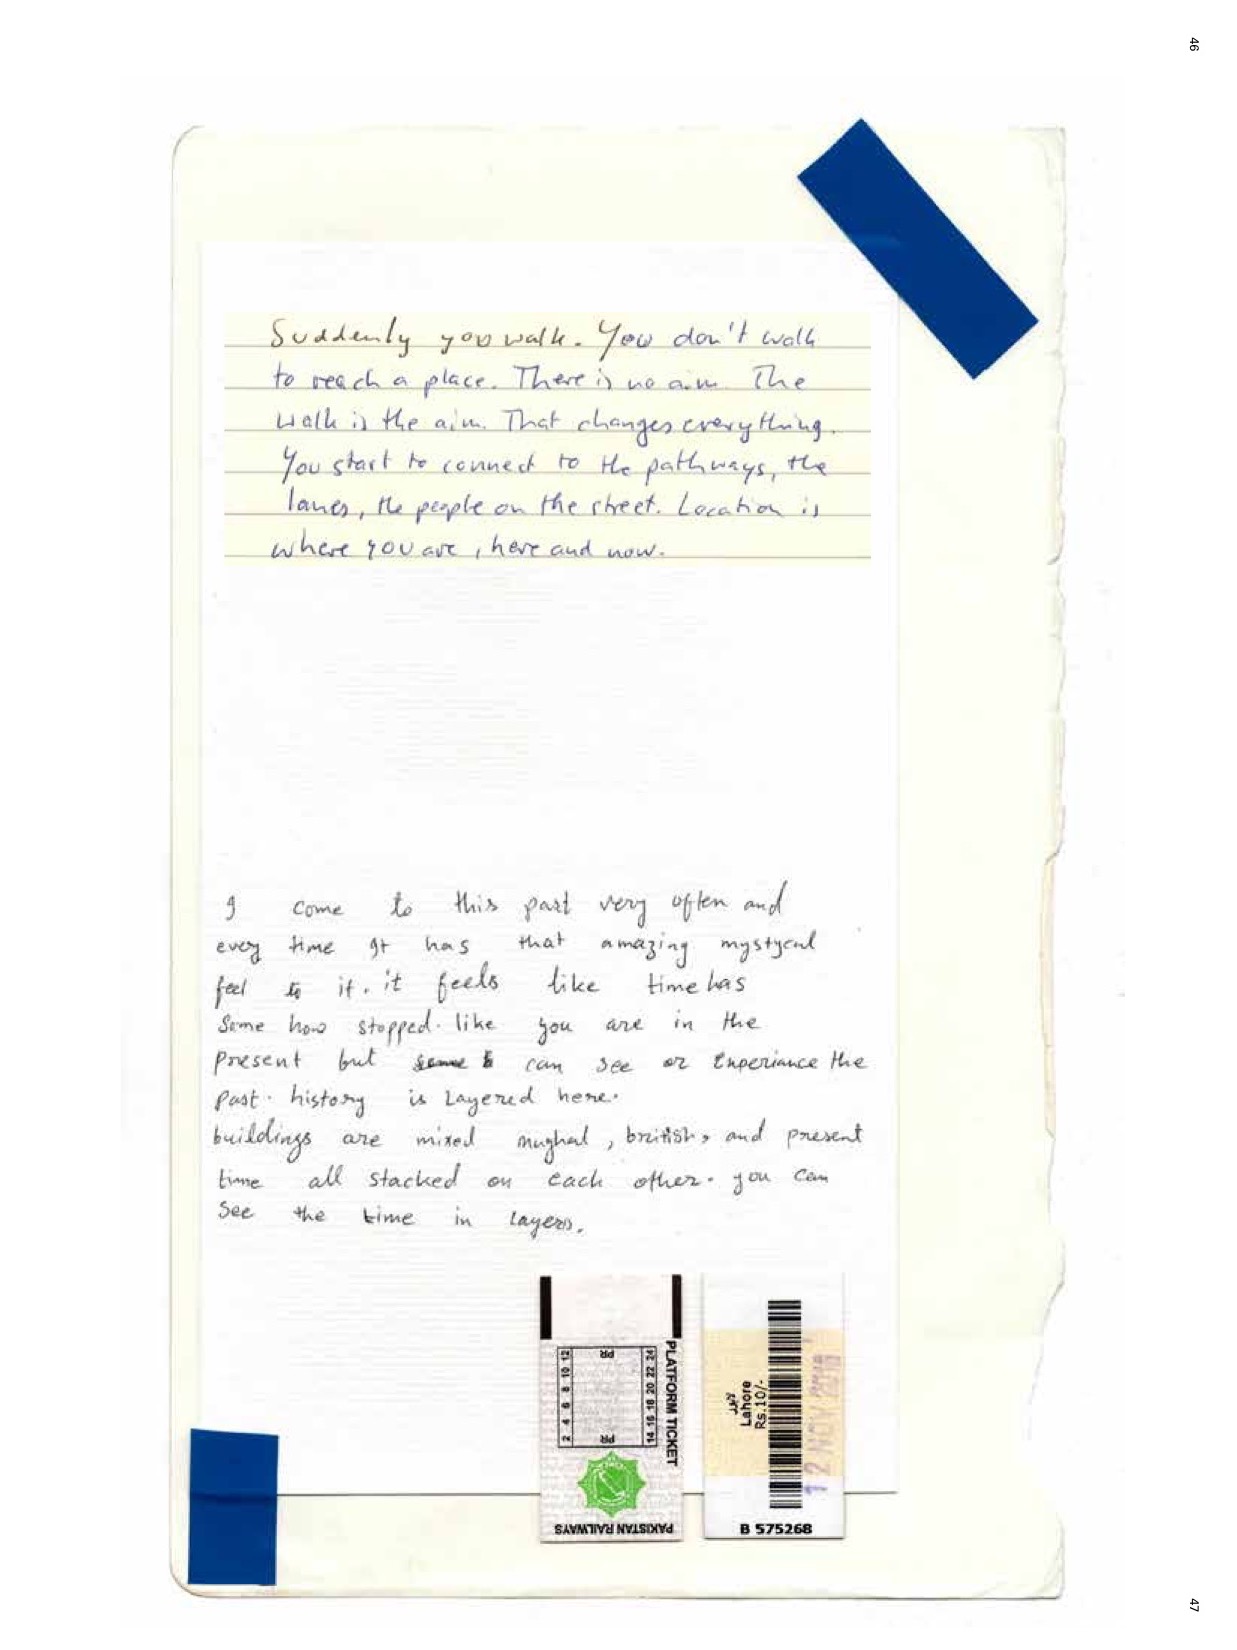 46
Suddenly you walk. You don't walk
to reach a place. There is no aim. The
walk is the aim. That changes everything.
You start to connect to the pathways, the
lanes, the people on the street. Location is
where you are, here and now.
I come to this part very often and
every time It has that amazing mystycal
feel to it. it feels like time has
Some how stopped. like you are in the
present but can see or Experiance the
past. history is Layered here.
buildings are mixed mughal, british, and present
time all stacked on each other. you can
See the time in layers.
PLATFORM TICKET
2 4 6 8 10 12
14 16 18 20 22 24
PR
PR
PAKISTAN RAILWAYS
لاہور
Lahore
Rs.10/-
12 NOV
B 575268
47